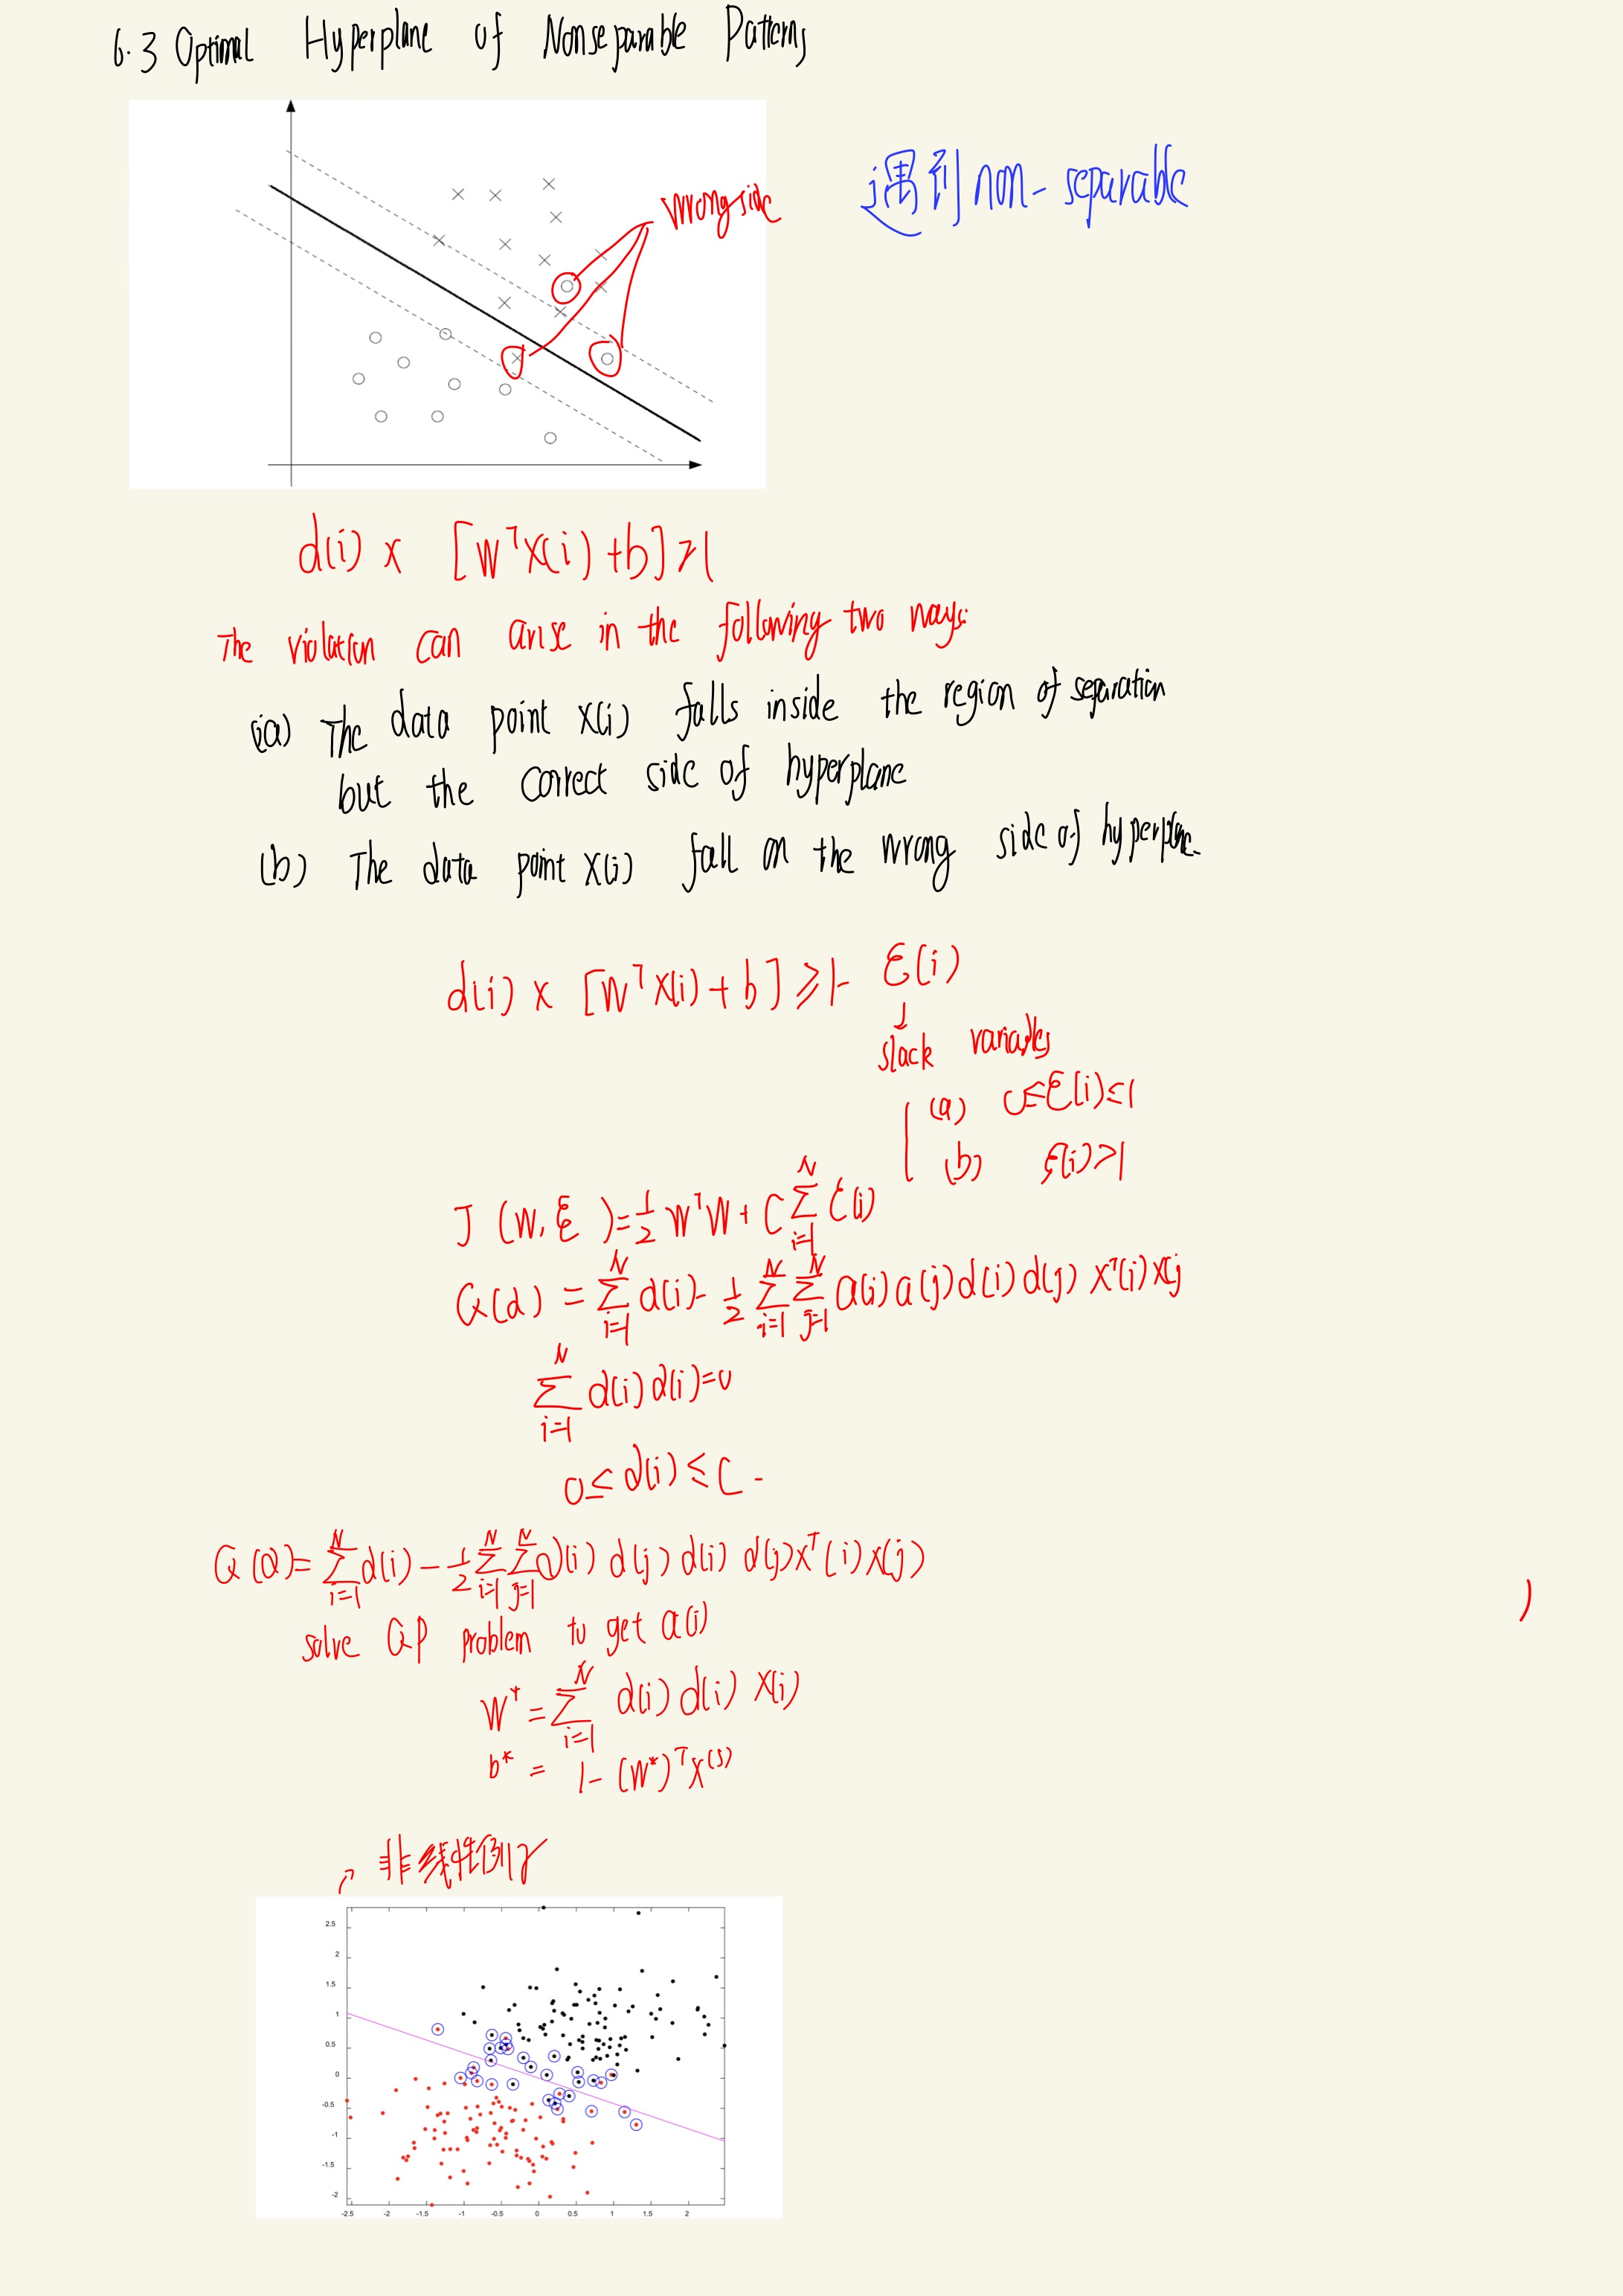 6.3 Optimal Hyperplane of Nonseparable Patterns
遇到 non-separable
wrong side
d(i) x [w^T x(i) + b] ≥ 1
The violation can arise in the following two ways:
(a) The data point x(i) falls inside the region of separation
but the correct side of hyperplane
(b) The data point x(i) fall on the wrong side of hyperplane.
d(i) x [w^T x(i) + b] ≥ 1 - ξ(i)
↓
slack variables
(a) 0 ≤ ξ(i) ≤ 1
(b) ξ(i) > 1
J (w, ξ) = 1/2 w^T w + C Σ_{i=1}^{N} ξ(i)
Q(α) = Σ_{i=1}^{N} α(i) - 1/2 Σ_{i=1}^{N} Σ_{j=1}^{N} α(i) α(j) d(i) d(j) x^T(i) x(j)
Σ_{i=1}^{N} α(i) d(i) = 0
0 ≤ α(i) ≤ C -
Q(α) = Σ_{i=1}^{N} α(i) - 1/2 Σ_{i=1}^{N} Σ_{j=1}^{N} α(i) α(j) d(i) d(j) x^T(i) x(j)
solve QP problem to get α(i)
w* = Σ_{i=1}^{N} α(i) d(i) x(i)
b* = 1 - (w*)^T x^(s)
非线性例子
2.5
2
1.5
1
0.5
0
-0.5
-1
-1.5
-2
-2.5 -2 -1.5 -1 -0.5 0 0.5 1 1.5 2